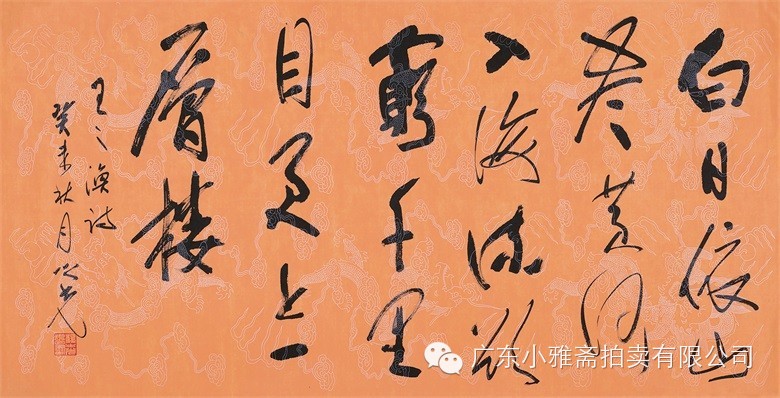 白日依山
尽黄河
入海流欲
窮千里
目更上一
層楼
王之涣诗
癸未秋月
广东小雅斋拍卖有限公司